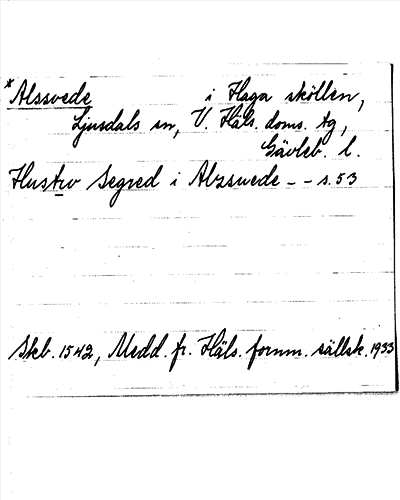 *Alssvede i Haga sköllen,
Ljusdals sn, V. Häls. doms. tg,
Gävleb. l.
Hustrv Segred i Alzswede - - s. 53
Skb. 1542, Medd. fr. Häls. fornm. sällsk. 1933